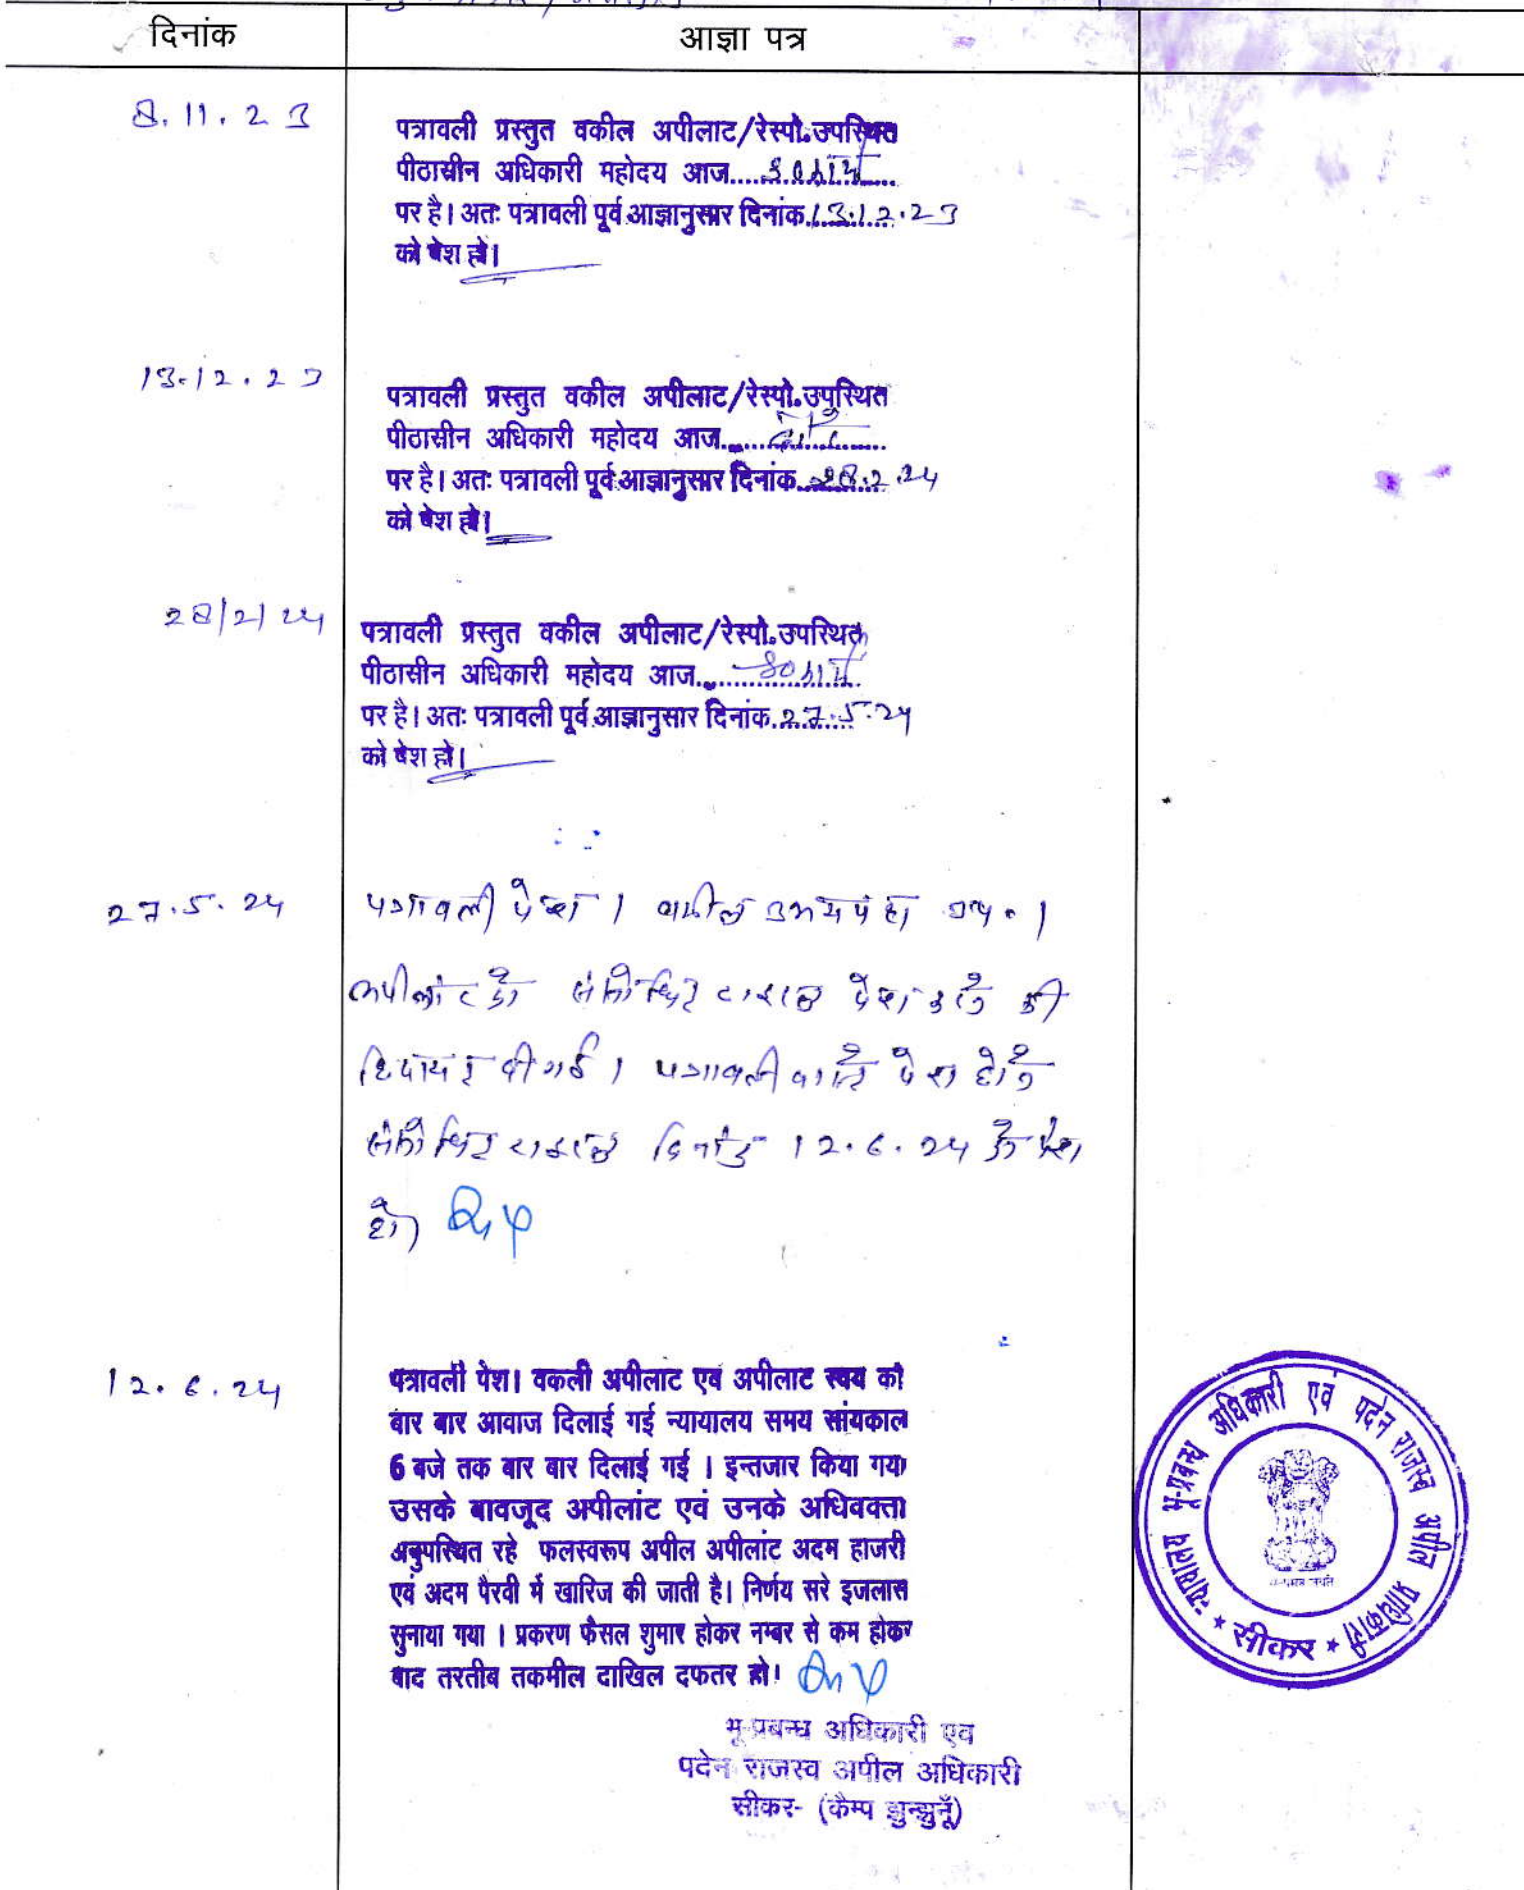 दिनांक
आज्ञा पत्र
8.11.23
पत्रावली प्रस्तुत वकील अपीलाट/रेस्पो.उपस्थित
पीठासीन अधिकारी महोदय आज..................
पर है। अतः पत्रावली पूर्व आज्ञानुसार दिनांक 13.12.23
को पेश हो।
13.12.23
पत्रावली प्रस्तुत वकील अपीलाट/रेस्पो.उपस्थित
पीठासीन अधिकारी महोदय आज..................
पर है। अतः पत्रावली पूर्व आज्ञानुसार दिनांक 28.2.24
को पेश हो।
28/2/24
पत्रावली प्रस्तुत वकील अपीलाट/रेस्पो.उपस्थित
पीठासीन अधिकारी महोदय आज..................
पर है। अतः पत्रावली पूर्व आज्ञानुसार दिनांक 27.5.24
को पेश हो।
27.5.24
पत्रावली पेश। वकील उभयपक्ष उप०।
अपीलांट को संशोधित टाईटल पेश करने की
हिदायत दी गई। पत्रावली वास्ते पेश होने
संशोधित टाईटल दिनांक 12.6.24 को पेश
हो।
12.6.24
पत्रावली पेश। वकली अपीलाट एव अपीलाट स्वय को
बार बार आवाज दिलाई गई न्यायालय समय सांयकाल
6 बजे तक बार बार दिलाई गई । इन्तजार किया गया
उसके बावजूद अपीलांट एवं उनके अधिवक्ता
अनुपस्थित रहे फलस्वरूप अपील अपीलांट अदम हाजरी
एवं अदम पैरवी में खारिज की जाती है। निर्णय सरे इजलास
सुनाया गया । प्रकरण फैसल शुमार होकर नम्बर से कम होकर
बाद तरतीब तकमील दाखिल दफतर हो।
भू-प्रबन्ध अधिकारी एव
पदेन राजस्व अपील अधिकारी
सीकर- (कैम्प झुन्झुनूँ)
न्यायालय भू-प्रबन्ध अधिकारी एवं पदेन राजस्व अपील प्राधिकारी
* सीकर *